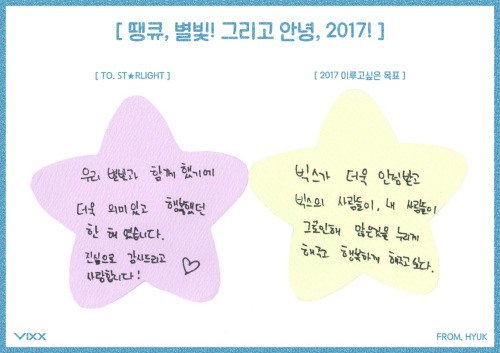 [ 땡큐, 별빛! 그리고 안녕, 2017! ]
[ TO. ST★RLIGHT ]
우리 별빛과 함께 했기에
더욱 의미있고 행복했던
한 해 였습니다.
진심으로 감사드리고
사랑합니다! ♡
[ 2017 이루고싶은 목표 ]
빅스가 더욱 인정받고
빅스의 사람들이, 내 사람들이
그로인해 많은것을 누리게
해주고 행복하게 해주고 싶다.
VIXX
FROM. HYUK